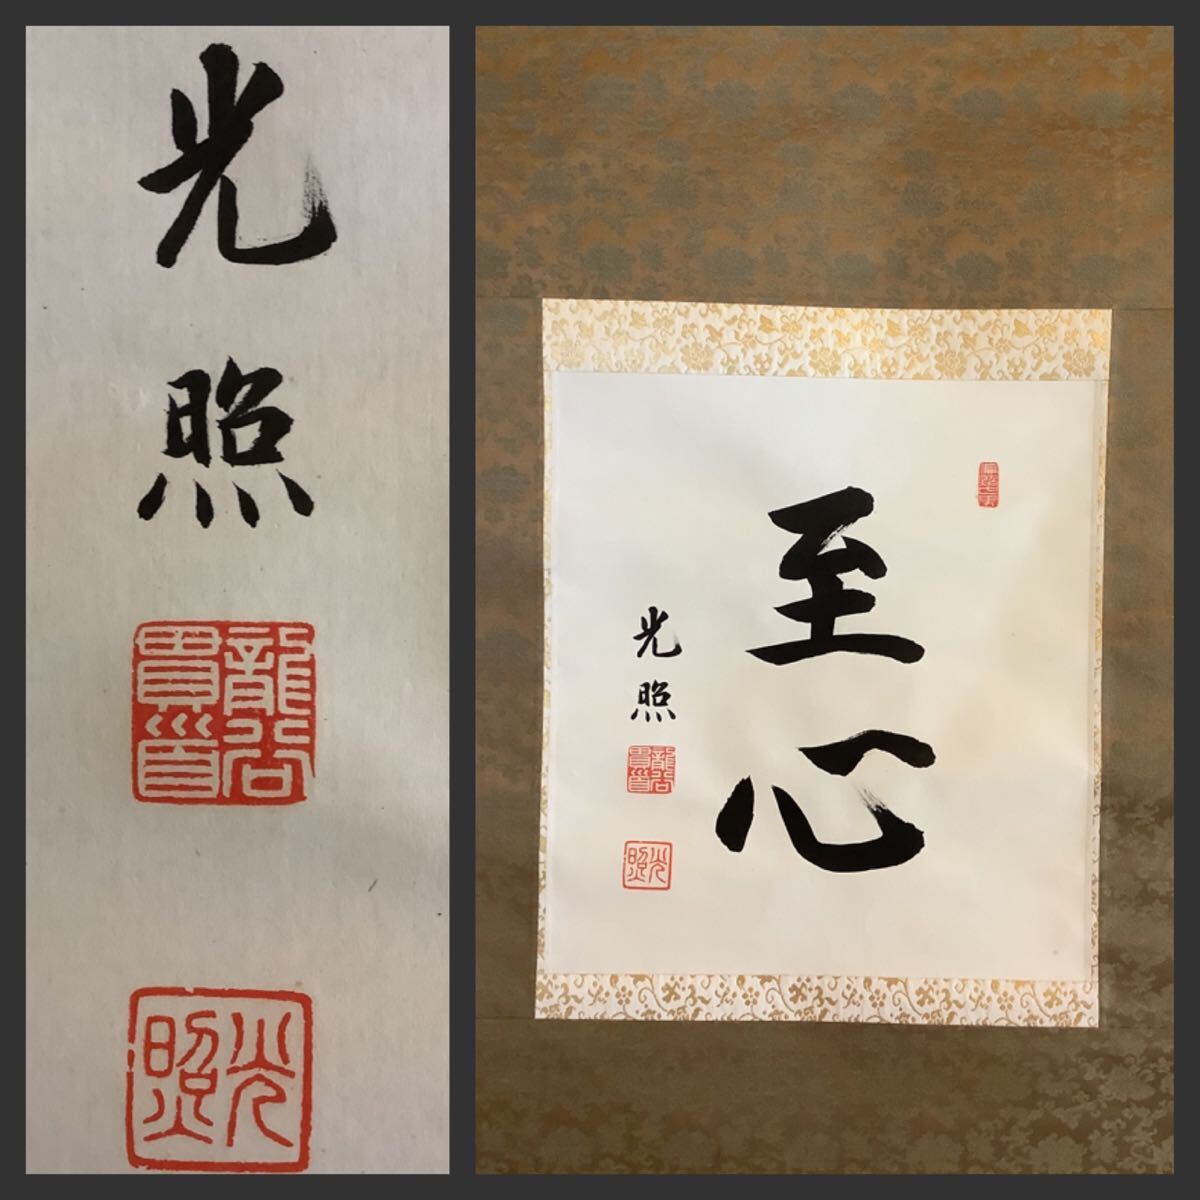 光照
龍谷貫首
光照
至心
光照
龍谷貫首
光照